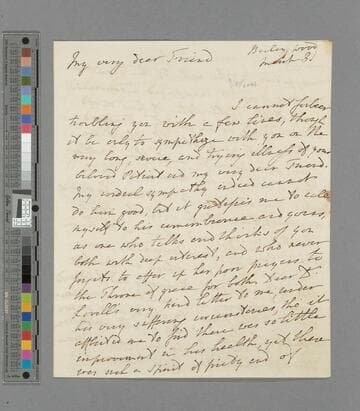 Barley wood
My very dear Friend
March 8
I cannot forbear
troubling you with a few lines, though
it be only to sympathize with you on the
very long, severe, and trying illness of your
beloved Patient and my very dear Friend.
My cordial sympathy indeed cannot
do him good, but it gratifies me to call
myself to his remembrance and yours,
as one who talks and thinks of you
both with deep interest, and who never
forgets to offer up her poor prayers to
the Throne of grace for both. Dear
Lovell's very kind letter to me under
his very suffering circumstances, tho' it
afflicted me to find there was so little
improvement in his health, yet there
was such a spirit of piety and of